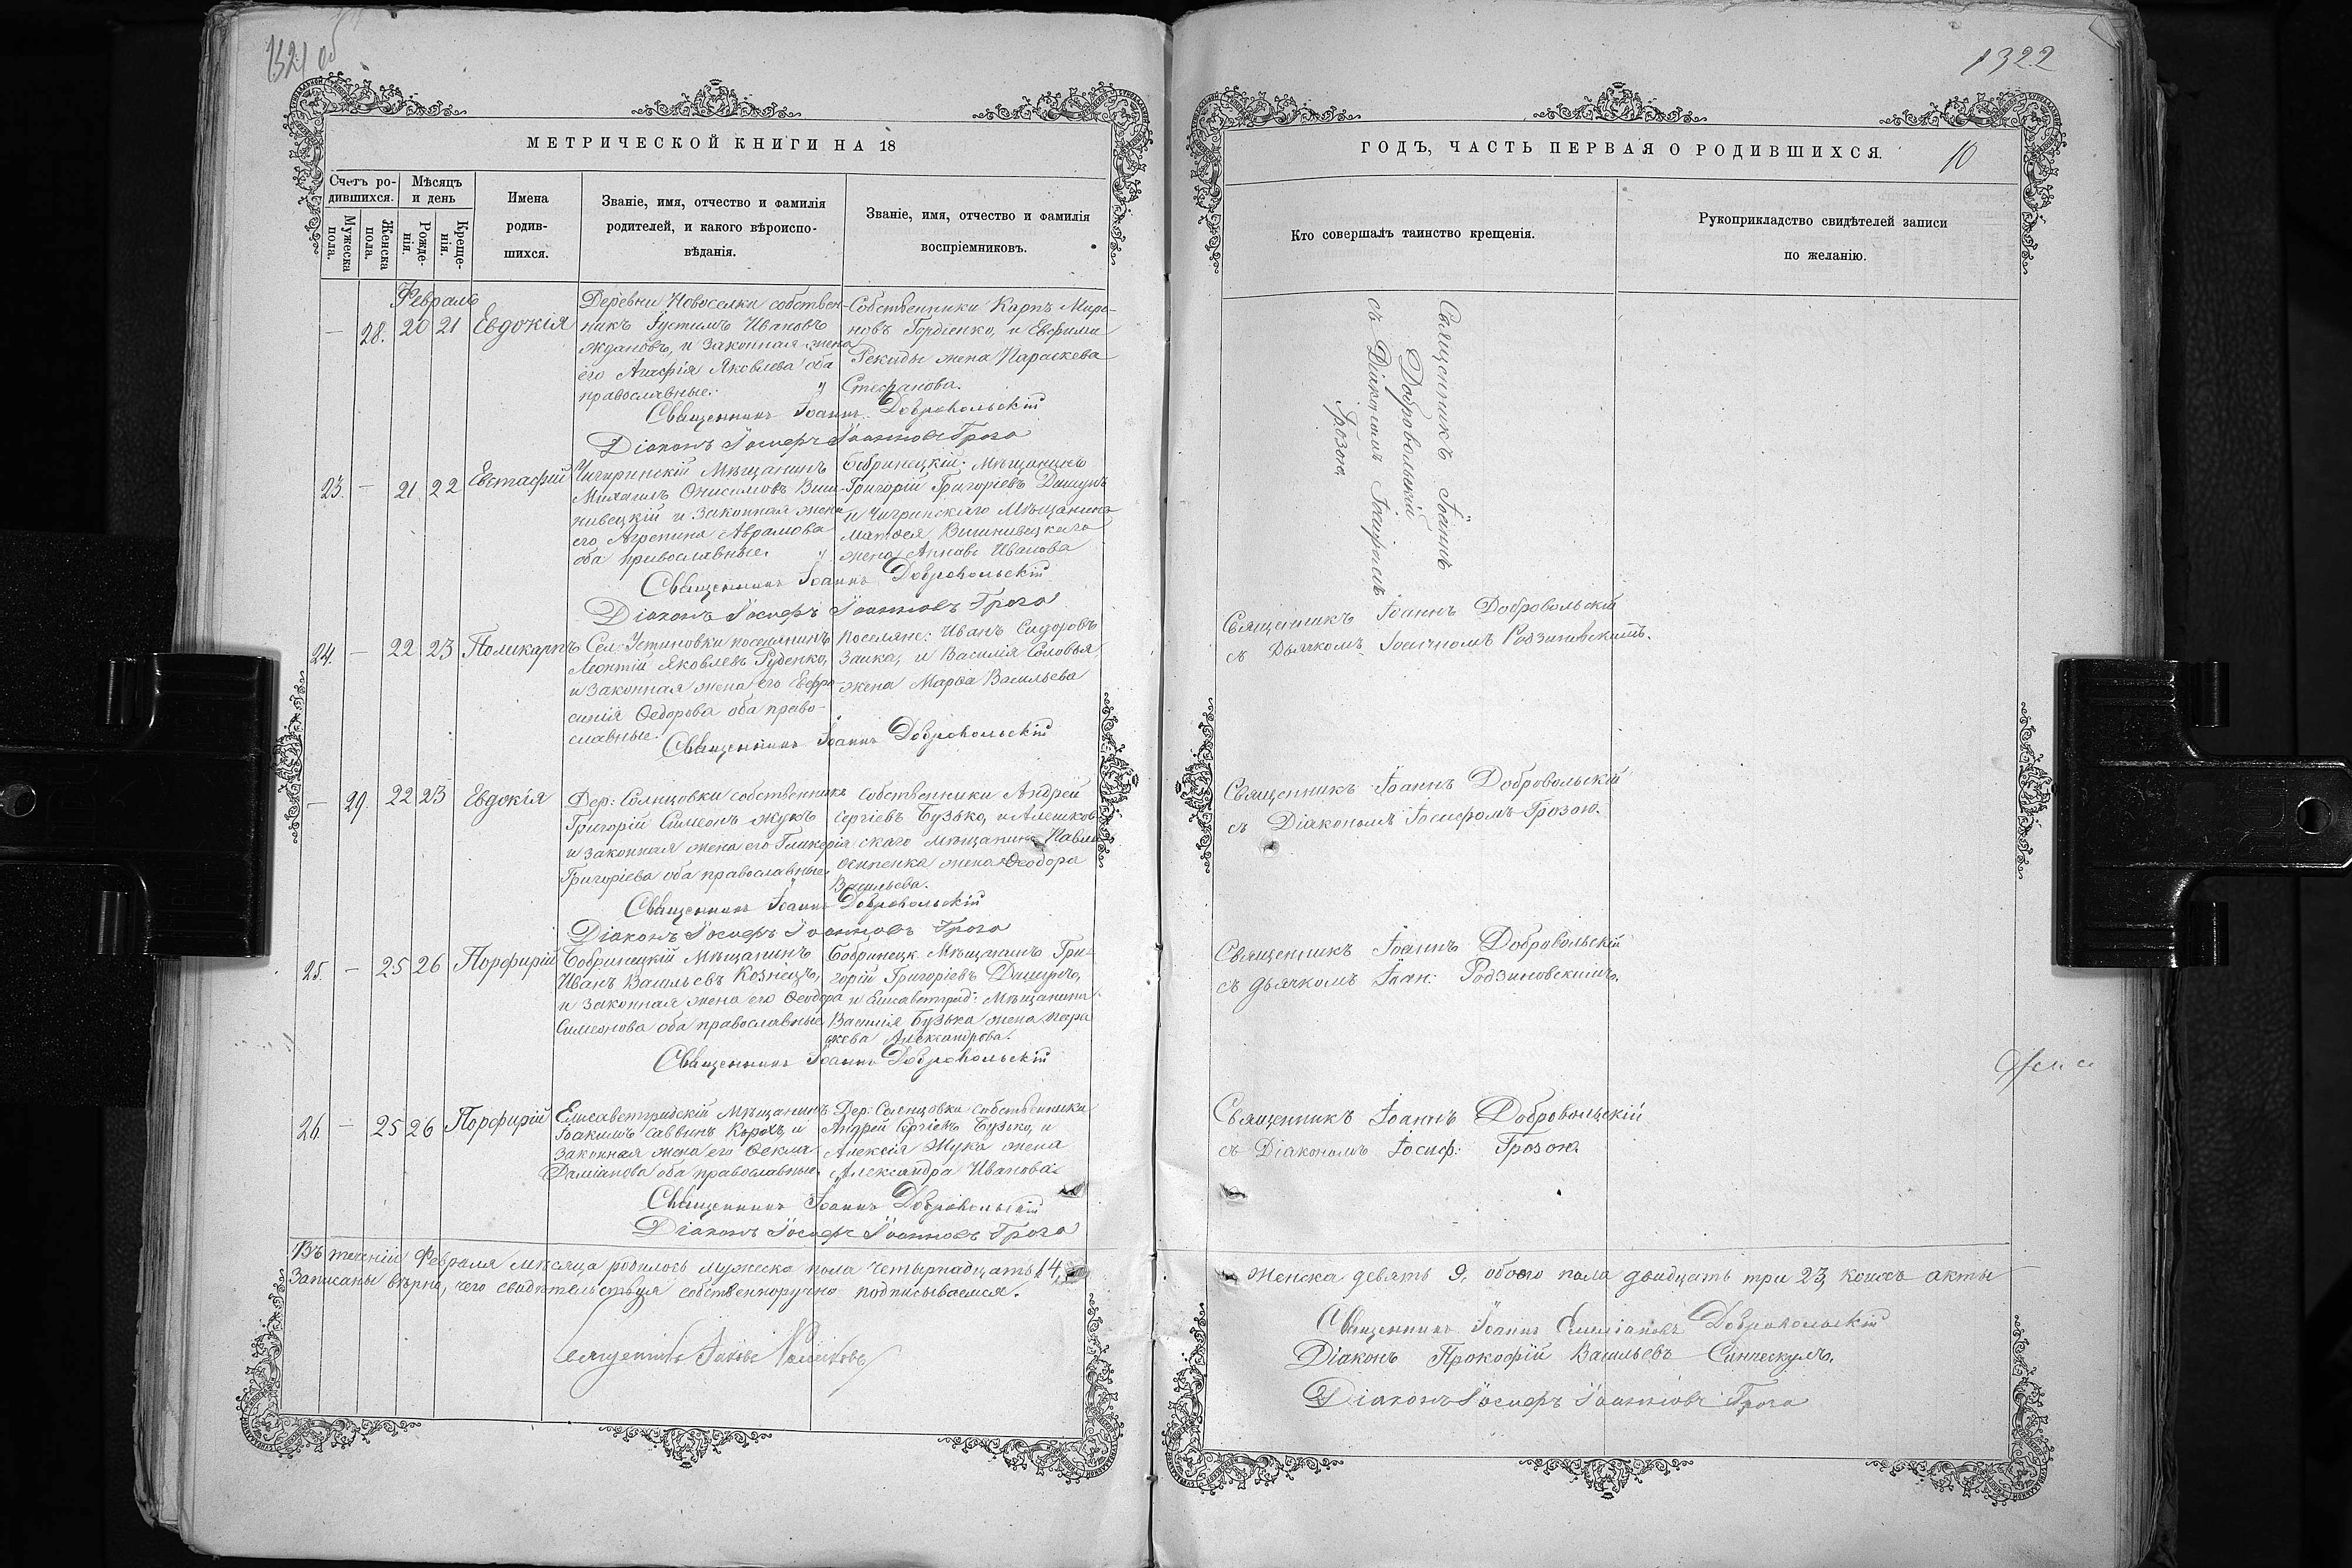 1321 об
МЕТРИЧЕСКОЙ КНИГИ НА 18
Счетъ ро-
дившихся.
Мѣсяцъ
и день
Мужеска
пола.
Женска
пола.
Рожде-
нія.
Креще-
нія.
Имена
родив-
шихся.
Званіе, имя, отчество и фамилія
родителей, и какого вѣроиспо-
вѣданія.
Званіе, имя, отчество и фамилія
воспріемниковъ.
Февраль
— 28. 20 21 Евдокія
Деревни Новоселки собствен-
никъ Іустинъ Ивановъ
Ждановъ, и законная жена
его Агафія Яковлева оба
православные.
Собственники Карпъ Миро-
новъ Гордіенко, и Евфима
Рекиды жена Параскева
Стефанова.
Священникъ Іоаннъ Добровольскій
Діаконъ Іосифъ Іоанновъ Гроза
23. — 21 22 Евстафій
Чигиринскій Мѣщанинъ
Михаилъ Онисимовъ Виш-
нивецкій и законная жена
его Агрепина Аврамова
оба православные.
Бобринецкій: Мѣщанинъ
Григорій Григоріевъ Дишучъ
и Чигринскаго Мѣщанина
Матѳея Вишнивецкаго
жена Анна Иванова
Священникъ Іоаннъ Добровольскій
Діаконъ Іосифъ Іоанновъ Гроза
24. — 22 23 Поликарпъ
Сел: Устиновки поселянинъ
Леонтій Яковлевъ Руденко,
и законная жена его Евфро-
синія Ѳедорова оба право-
славные.
Поселяне: Иванъ Сидоровъ
Заика, и Василія Соловья
жена Марѳа Васильева
Священникъ Іоаннъ Добровольскій
— 29. 22 23 Евдокія
Дер: Солнцовки собственникъ
Григорій Симеонъ Жукъ
и законная жена его Гликерія
Григоріева оба православные.
Собственники Андрей
Сергіевъ Бузько, и Алешков-
скаго мѣщанина Павла
жена Ѳеодора
Васильева.
Священникъ Іоаннъ Добровольскій
Діаконъ Іосифъ Іоанновъ Гроза
25. — 25 26 Порфирій
Бобринецкій Мѣщанинъ
Иванъ Васильевъ Козницъ,
и законная жена его Ѳеодора
Симеонова оба православные
Бобринецк. Мѣщанинъ Гри-
горій Григоріевъ Дишучъ,
и Елисаветград: Мѣщанина
Василія Бузька жена Пара
скева Александрова.
Священникъ Іоаннъ Добровольскій
26. — 25 26 Порфирій
Елисаветградскій Мѣщанинъ
Іоакимъ Саввинъ Корохъ, и
законная жена его Ѳекла
Даміанова оба православные.
Дер: Солнцовки собственники
Андрей Сергіевъ Бузько, и
Алексія Жука жена
Александра Иванова.
Священникъ Іоаннъ Добровольскій
Діаконъ Іосифъ Іоанновъ Гроза
Въ теченіи Февраля мѣсяца родилось мужеска пола четырнадцать 14,
Записаны вѣрно, чего свидѣтельствуя собственноручно подписываемся.
Священникъ
1322
ГОДЪ, ЧАСТЬ ПЕРВАЯ О РОДИВШИХСЯ.
10
Кто совершалъ таинство крещенія.
Рукоприкладство свидѣтелей записи
по желанію.
Священникъ Іоаннъ
Добровольскій
съ Діакономъ Іосифомъ
Грозою.
Священникъ Іоаннъ Добровольскій
съ Дьячкомъ Іоанномъ Родзиновскимъ.
Священникъ Іоаннъ Добровольскій
съ Діакономъ Іосифомъ Грозою.
Священникъ Іоаннъ Добровольскій
съ дьячкомъ Іоан: Родзиновскимъ.
Священникъ Іоаннъ Добровольскій
съ Діакономъ Іосиф: Грозою.
Женска девять 9, обоего пола двадцать три 23, коихъ акты
Священникъ Іоаннъ Емиліановъ Добровольскій
Діаконъ Прокофій Васильевъ
Діаконъ Іосифъ Іоанновъ Гроза